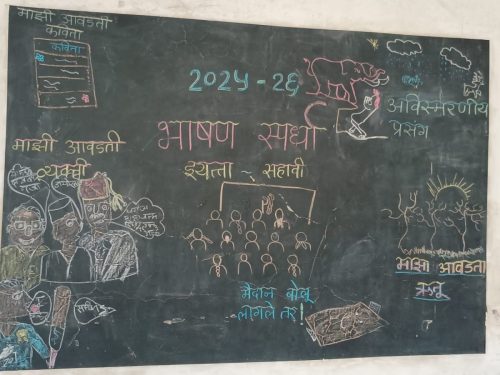 माझी आवडती
कविता
कविता
2025-26
भाषण स्पर्धा
इयत्ता - सहावी
अविस्मरणीय
प्रसंग
माझी आवडती
व्यक्ती
मैदान बोलू
लागले तर!
माझा आवडता
ऋतू